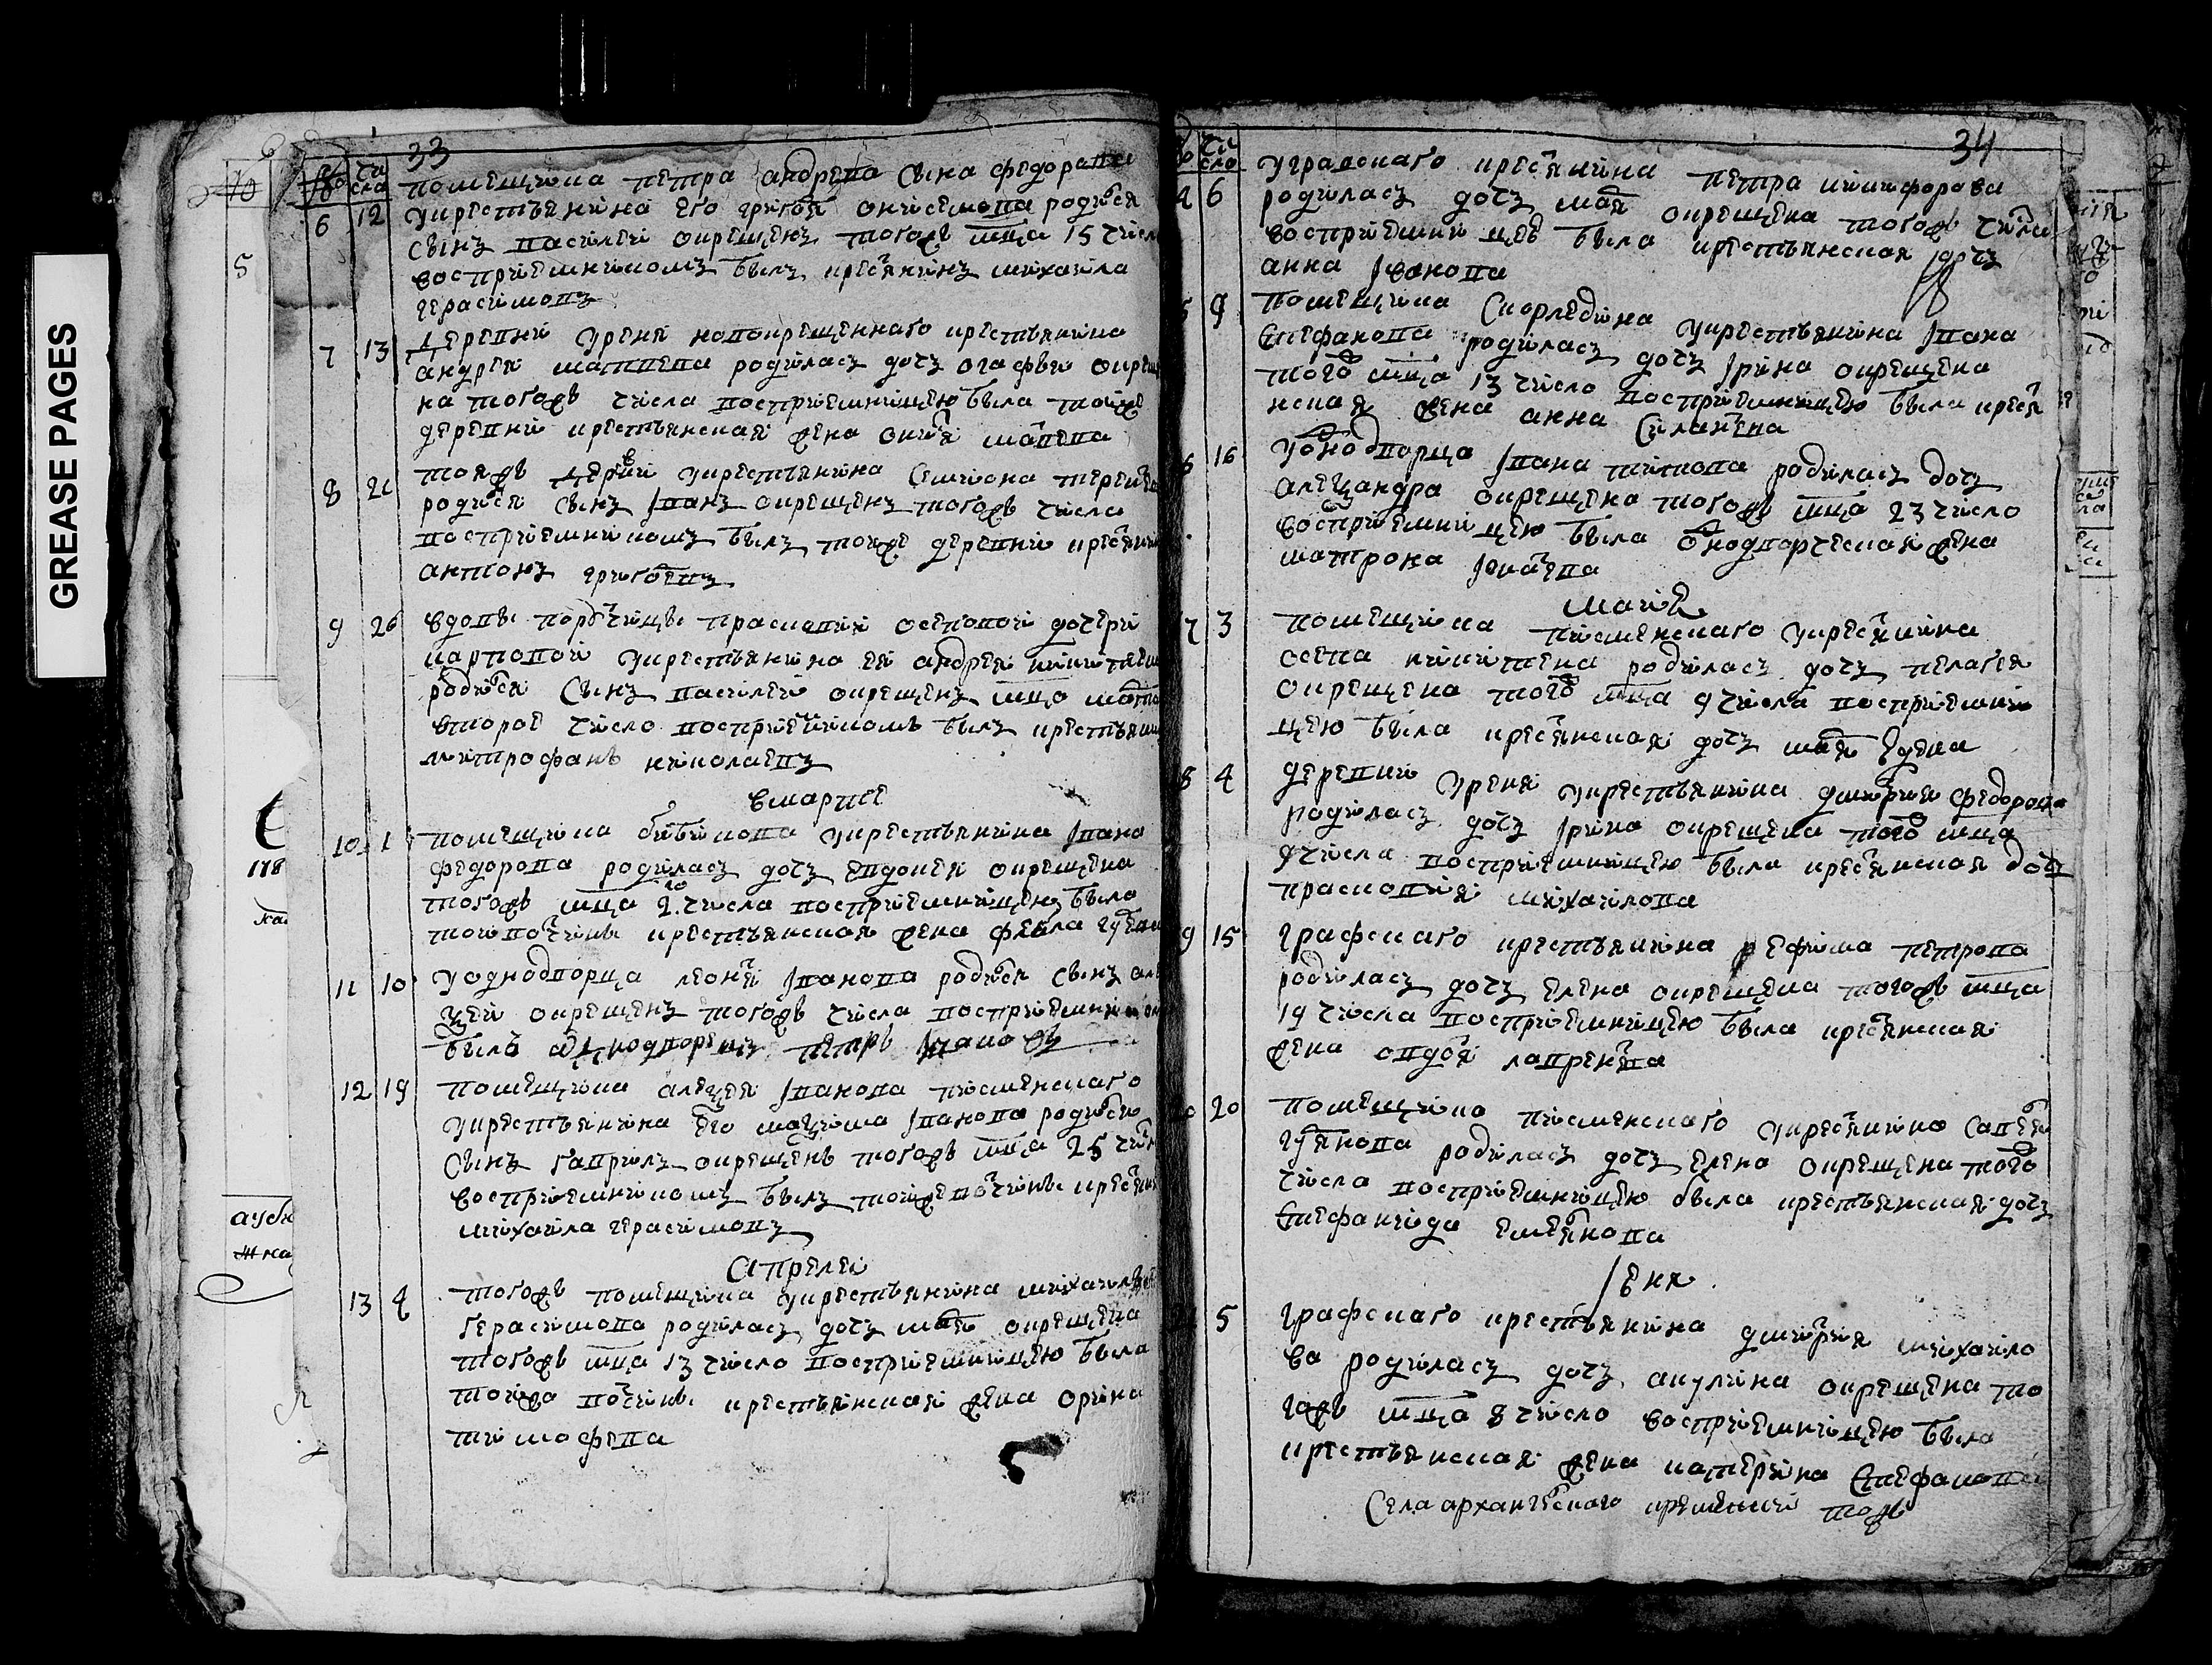 GREASE PAGES
33
помещика петра андреева сына федорова
6 12 укрестьянина его григоя онисимова родися
сынъ василеи окрещенъ тогожъ мца 15 числа
восприемникомъ былъ кресянинъ михаила
герасимовъ
7 13 деревни уреня новокрещеннаго крестьянина
андрея матвеева родилась дочь агафья окреще
на тогожъ числа восприемницею была тоиже
деревни крестьянская жена
8 21 тояжъ деревни укрестьянина симиона терентева
родися сынъ иванъ окрещенъ тогожъ числа
восприемникомъ былъ тоиже деревни кресянинъ
антонъ григоевъ
9 26 вдовы порутчицы прасковии осиповои дочери
карповои укрестьянина еи андрея никитина
родися сынъ василеи окрещенъ мца марта
второе число восприемникомъ былъ крестьянинъ
митрофанъ николаевъ
вмарте
10 1 помещика бибикова укрестьянина ивана
федорова родилась дочь евдокея окрещена
тогожъ мца 2го числа восприемницею была
тои вотчины крестьянская жена фекла
11 10 уоднодворца леонтя иванова родися сынъ але
ксеи окрещенъ тогожъ числа восприемником
былъ однодворецъ петръ ивановъ
12 19 помещика алексея иванова писменскаго
укрестьянина его максима иванова родися
сынъ гаврилъ окрещенъ тогожъ мца 25 число
восприемникомъ былъ тоиже вотчины кресянинъ
михаила герасимовъ
апреля
13 4 тогожъ помещика укрестьянина михаилы
герасимова родилась дочь маря окрещена
тогожъ мца 13 число восприемницею была
тоижа вотчины крестьянская жена орина
тимофева
34
число
4 6 уграфскаго кресянина петра никифорова
родилась дочь маря окрещена тогожъ числа
восприемницеи была крестьянская дочь
анна иванова
5 9 помещика скорледина укрестьянина ивана
степанова родилась дочь ирина окрещена
того мца 13 число восприемницею была кресят
нская жена анна силантева
6 16 уоднодворца ивана титова родилась дочь
александра окрещена тогожъ мца 23 число
восприемницею была однодворческая жена
матрона игнатева
маие
7 3 помещика писменскаго укресянина
осипа никитина родилась дочь пелагея
окрещена того мца 9 числа восприемни
цею была кресянская дочь маря
8 4 деревни уреня укрестьянина дмитрея федорова
родилась дочь ирина окрещена того мца
9 числа восприемницею была кресянская дочь
прасковия михаилова
9 15 графскаго крестьянина ефима петрова
родилась дочь елена окрещена тогожъ мца
19 числа восприемницею была кресянская
жена авдотя лаврентева
20 помещика писменскаго укресянина савелья
родилась дочь елена окрещена того
числа восприемницею была крестьянская дочь
степанида емелянова
июня
5 графскаго крестьянина дмитрия михаило
ва родилась дочь акулина окрещена то
гожъ мца 8 число восприемницею была
крестьянская жена катерина степанова
села архангелскаго крещении тожъ